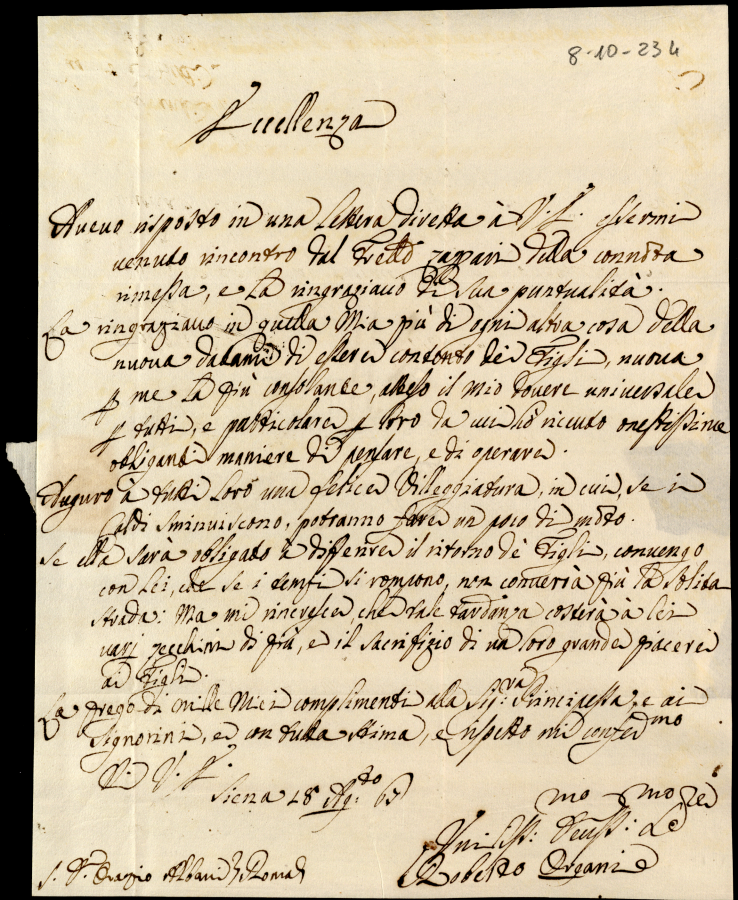 8-10-234
Eccellenza
Avevo risposto in una lettera diretta à V. E. essermi
venuto rincontro dal Fratello Zappari della connota
rimessa, e La ringraziavo della Sua puntualità.
La ringraziavo in quella Mia più di ogni altra cosa della
nuova datami di essere contento dei Figli, nuova
p me La più consolante, atteso il mio dovere universale
p tutti, e particolare p loro da cui hò ricevuto onestissime
obliganti maniere di pensare, e di operare.
Auguro à tutti Loro una felice Villeggiatura, in cui, se i
Caldi sminuiscono, potranno fare un poco di moto.
Se ella sarà obligato à differire il ritorno dè Figli, convengo
con Lei, che se i tempi si rompono, non converrà più la solita
strada: Ma mi rincresce, che tale tardanza costerà à lei
varj zecchini di più, e il sacrifizio di un loro grande piacere
ai Figli.
La prego di mille Miei complimenti alla Sig:ra Principessa, e ai
Signorini, e con tutta stima, e rispetto mi confermo
Di V. E.
Siena 18 Ag:to 65
Umiliss:mo Devotiss:mo Se:re
Roberto Organi
S. D. Orazio Albani Roma